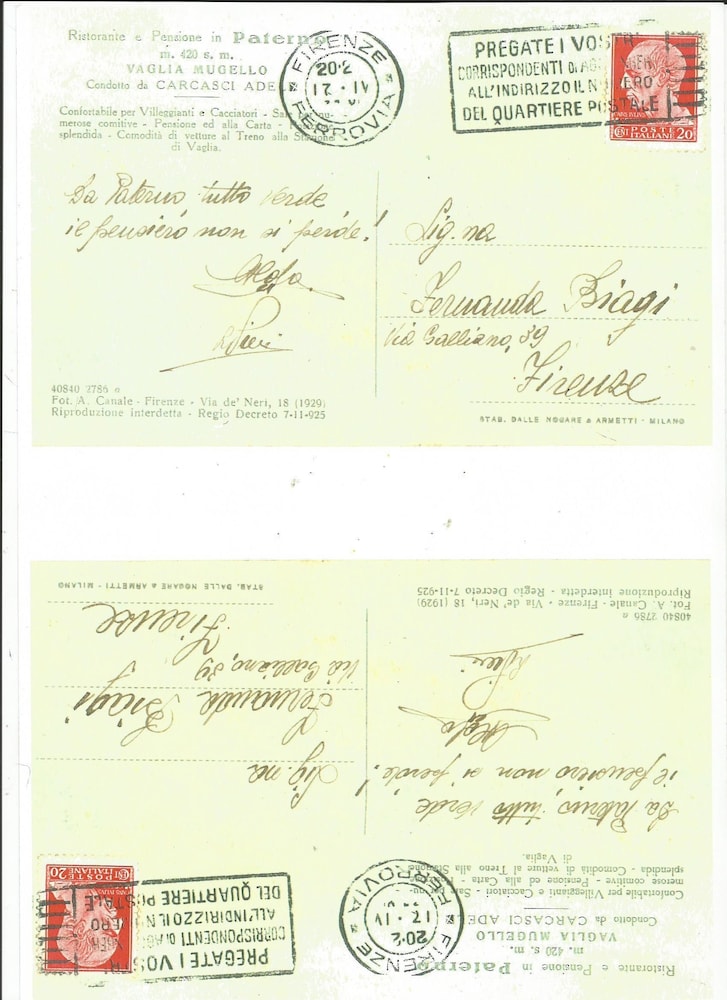 Ristorante e Pensione in Paterno
m. 420 s. m.
VAGLIA MUGELLO
Condotto da CARCASCI ADE
Confortabile per Villeggianti e Cacciatori - Sa
merose comitive - Pensione ed alla Carta -
splendida - Comodità di vetture al Treno alla Stazione
di Vaglia.
FIRENZE
20·2
17 · IV
FERROVIA
PREGATE I VOSTRI
CORRISPONDENTI DI AG
ALL'INDIRIZZO IL NUMERO
DEL QUARTIERE POSTALE
CENT POSTE ITALIANE 20
Da Paterno tutto verde
il pensiero non si perde!
Sig.na
Fernanda Biagi
Via Galliano, 39
Firenze
40840 2786 a
Fot. A. Canale - Firenze - Via de' Neri, 18 (1929)
Riproduzione interdetta - Regio Decreto 7-11-925
STAB. DALLE NOGARE & ARMETTI - MILANO
STAB. DALLE NOGARE & ARMETTI - MILANO
40840 2786 a
Fot. A. Canale - Firenze - Via de' Neri, 18 (1929)
Riproduzione interdetta - Regio Decreto 7-11-925
Firenze
Via Galliano, 39
Fernanda Biagi
Sig.na
Da Paterno tutto verde
il pensiero non si perde!
CENT POSTE ITALIANE 20
PREGATE I VOSTRI
CORRISPONDENTI DI AG
ALL'INDIRIZZO IL NUMERO
DEL QUARTIERE POSTALE
FIRENZE
20·2
17 · IV
FERROVIA
Ristorante e Pensione in Paterno
m. 420 s. m.
VAGLIA MUGELLO
Condotto da CARCASCI ADE
Confortabile per Villeggianti e Cacciatori - Sa
merose comitive - Pensione ed alla Carta -
splendida - Comodità di vetture al Treno alla Stazione
di Vaglia.